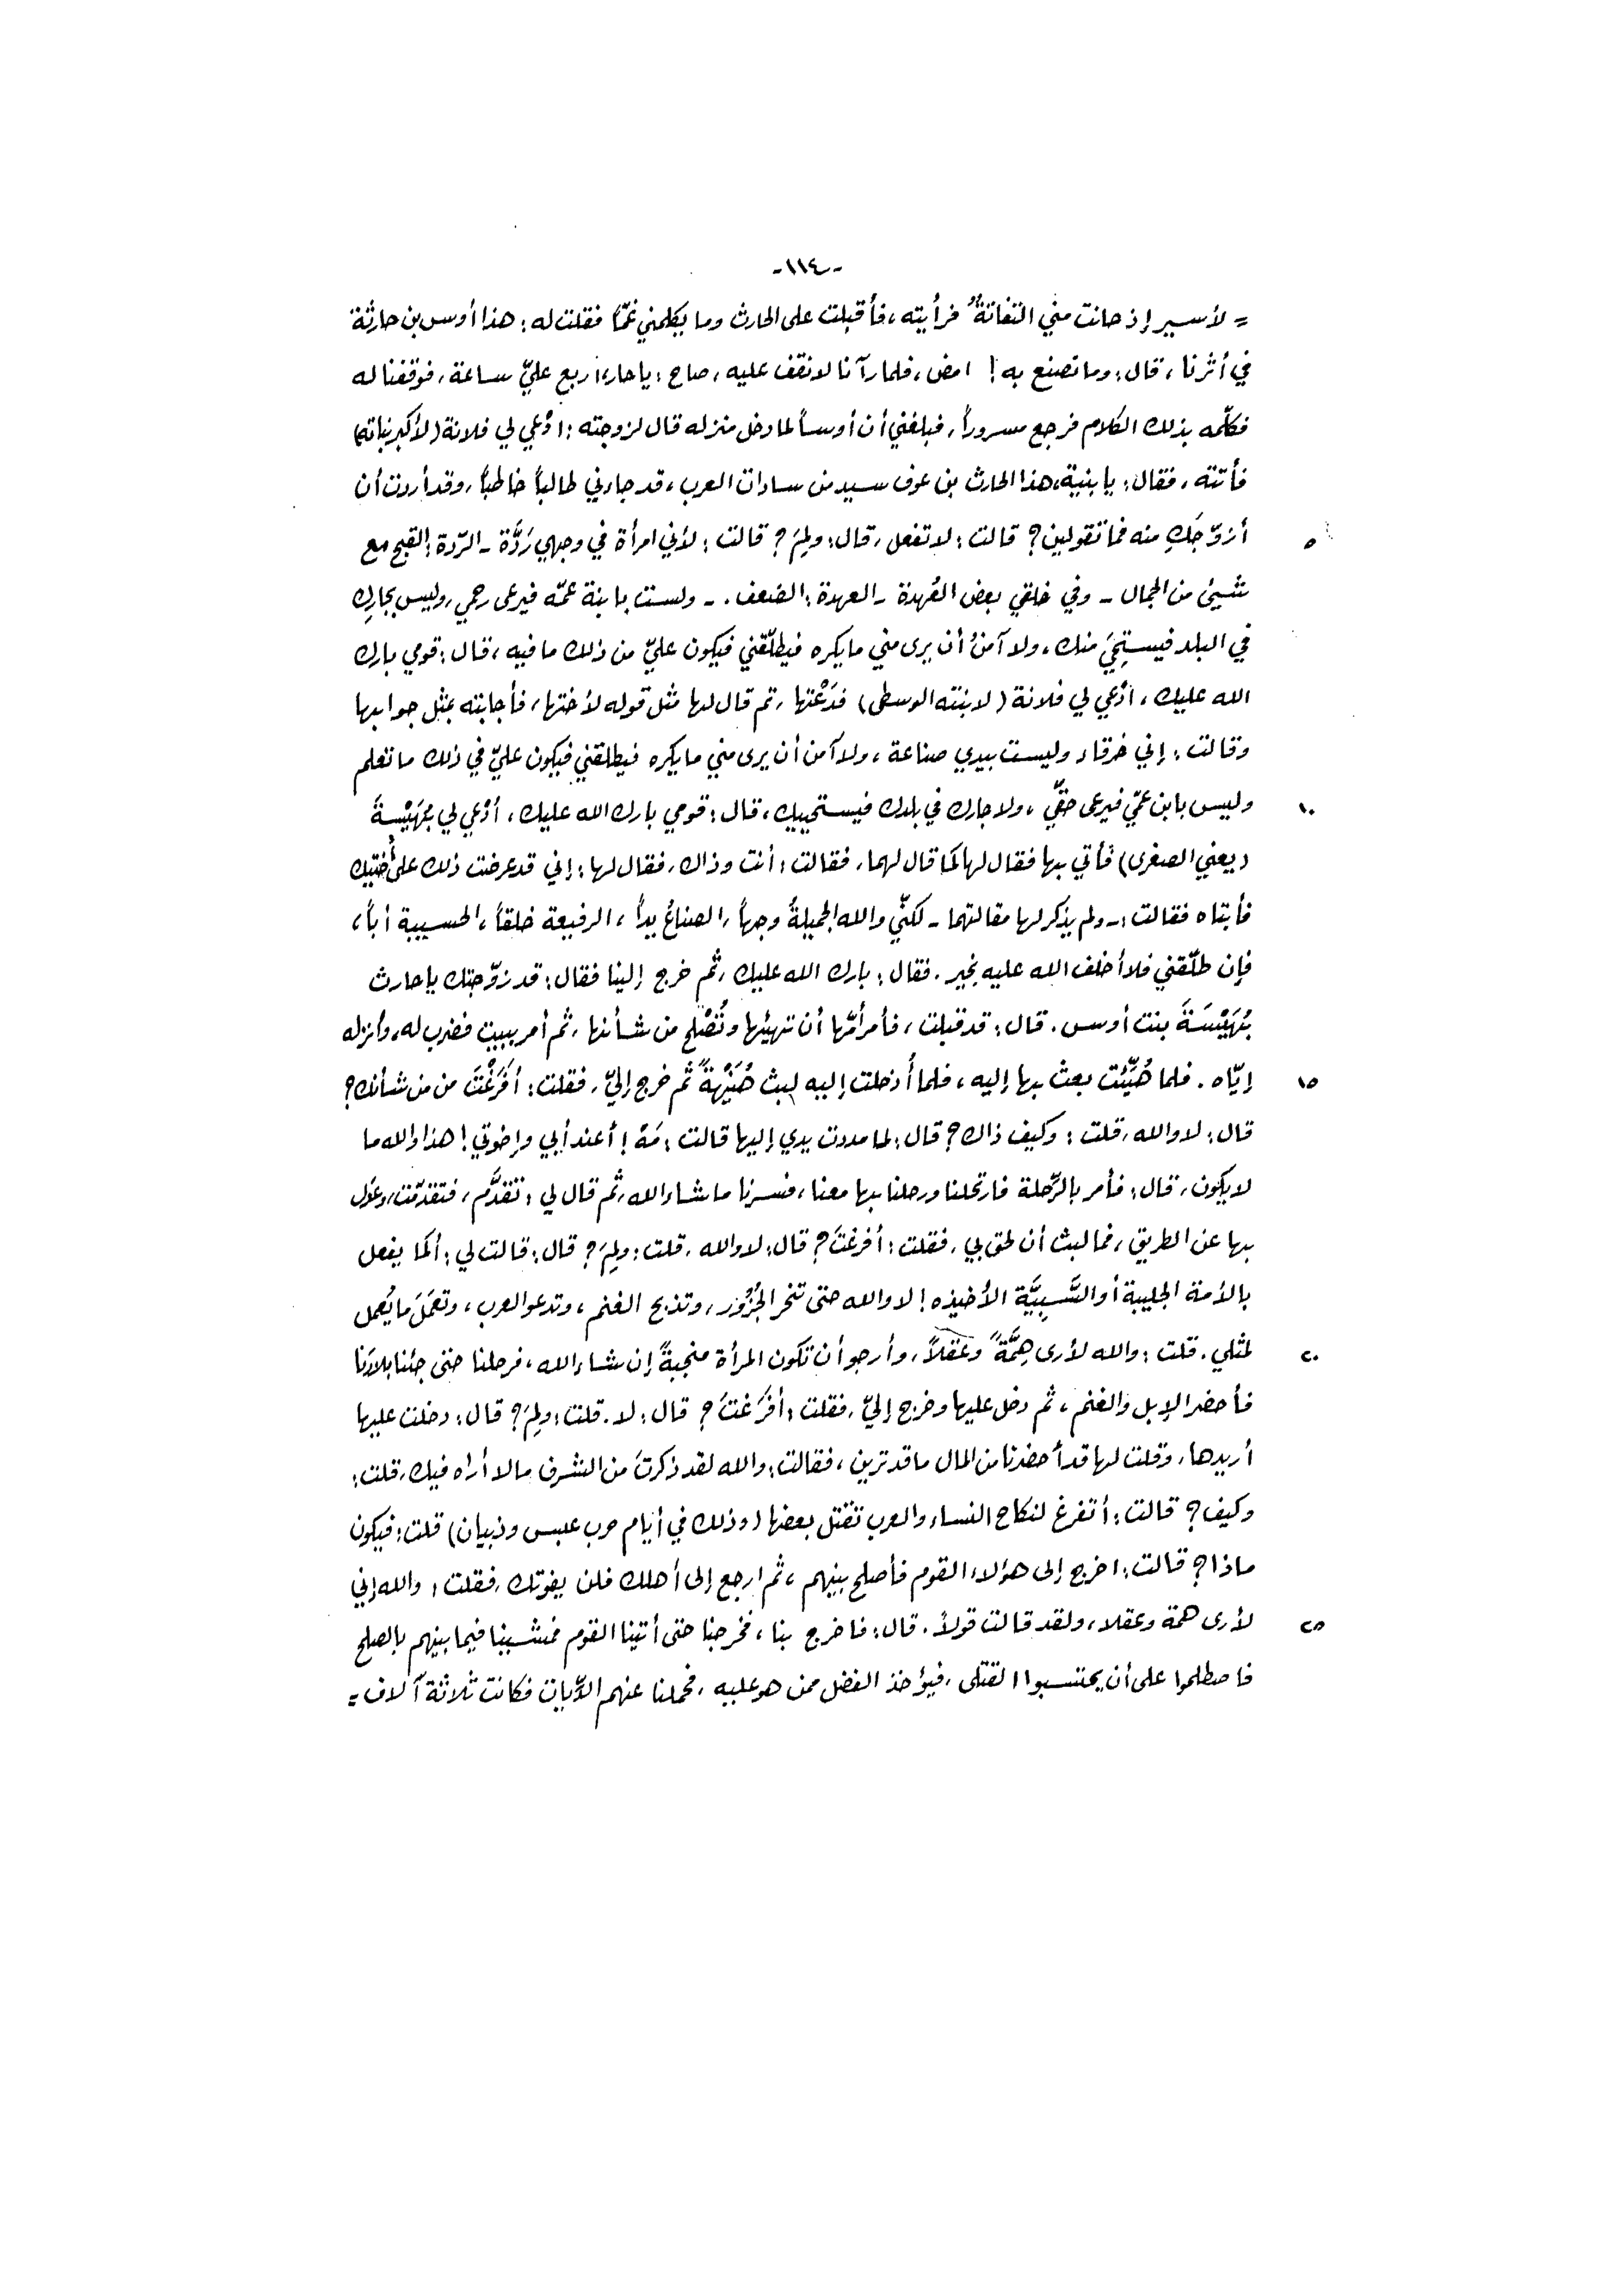 -١١٤-
= لأسير إذ حانت مني التفاتةٌ فرأيته، فأقبلت على الحارث وما يكلمني غمّاً فقلت له: هذا أوس بن حارثة
في أثرنا، قال: وما تصنع به! امض، فلما رآنا لا نقف عليه، صاح: يا حار، اربع عليّ ساعة، فوقفنا له
فكلّمه بذلك الكلام فرجع مسروراً، فبلغني أن أوساً لما دخل منزله قال لزوجته: ادْعي لي فلانة (لأكبر بناته)
فأتته، فقال: يا بنية، هذا الحارث بن عوف سيد من سادات العرب، قد جاءني طالباً خاطباً، وقد أردت أن
٥ أزوّجَكِ منه فما تقولين؟ قالت: لا تفعل، قال: ولِمَ؟ قالت: لأني امرأة في وجهي رَدَّة - الرّدة: القبح مع
شيئ من الجمال - وفي خلقي بعض العُهدة - العهدة: الضعف. - ولست بابنة عمّه فيرعى رحمي، وليس بجارك
في البلد فيستحِيَ منك، ولا آمنُ أن يرى مني ما يكره فيطلّقني فيكون عليّ من ذلك ما فيه، قال: قومي بارك
الله عليك، ادْعي لي فلانة (لابنته الوسطى) فدَعْتها، ثم قال لها مثل قوله لأختها، فأجابته بمثل جوابها
وقالت: إني خرقاء وليست بيدي صناعة، ولا آمن أن يرى مني ما يكره فيطلقني فيكون عليّ في ذلك ما تعلم
١٠ وليس بابن عمّي فيرعى حقّي، ولا جارك في بلدك فيستحييك، قال: قومي بارك الله عليك، أدْعي لي بُهَيْسةَ
(يعني الصغرى) فأتي بها فقال لها كما قال لهما، فقالت: أنت وذاك، فقال لها: إني قد عرضت ذلك على أُختيك
فأبتاه فقالت: - ولم يذكر لها مقالتهما - لكنّي والله الجميلةُ وجهاً، الصناعُ يداً، الرفيعة خلقاً، الحسيبة أباً،
فإن طلّقني فلا أخلف الله عليه بخير. فقال: بارك الله عليك، ثم خرج إلينا فقال: قد زوّجتك يا حارث
بُهَيْسَةَ بنت أوس. قال: قد قبلت، فأمر أمّها أن تهيئها وتُصْلح من شأنها، ثم أمر ببيت فضرب له، وأنزله
١٥ إيّاه. فلما هُيّئت بعث بها إليه، فلما أُدخلت إليه لبث هُنَيْهةً ثم خرج إليّ، فقلت: أفَرَغْتَ من من شأنك؟
قال: لا والله، قلت: وكيف ذاك؟ قال: لما مددت يدي إليها قالت: مَهْ! أعند أبي وإخوتي! هذا والله ما
لا يكون، قال: فأمر بالرّحلة فارتحلنا ورحلنا بها معنا، فسرنا ما شاء الله، ثم قال لي: تقدَّم، فتقدّمت، وعدل
بها عن الطريق، فما لبث أن لحق بي، فقلت: أفرغتَ؟ قال: لا والله، قلت: ولِمَ؟ قال: قالت لي: أكما يفعل
بالأمة الجليبة أو السَّبِيَّة الأخيذه! لا والله حتى تنحر الجُزُوَر، وتذبح الغنم، وتدعو العرب، وتعمَلَ ما يُعمل
٢٠ لمثلي. قلت: والله لأرى هِمَّةً وعقلاً، وأرجو أن تكون المرأة منجبةً إن شاء الله، فرحلنا حتى جئنا بلادَنا
فأحضر الإبل والغنم، ثم دخل عليها وخرج إليّ، فقلت: أفَرَغتَ؟ قال: لا. قلت: ولِمَ؟ قال: دخلت عليها
أريدها، وقلت لها قد أحضرنا من المال ما قد ترين، فقالت: والله لقد ذكرتَ من الشرف ما لا أراه فيك، قلت:
وكيف؟ قالت: أتفرغ لنكاح النساء والعرب تقتل بعضها (وذلك في أيام حرب عبس وذبيان) قلت: فيكون
ماذا؟ قالت: اخرج إلى هؤلاء القوم فأصلح بينهم، ثم ارجع إلى أهلك فلن يفوتك، فقلت: والله إني
٢٥ لأرى همة وعقلا، ولقد قالت قولاً. قال: فاخرج بنا، فخرجنا حتى أتينا القوم فمشينا فيما بينهم بالصلح
فاصطلحوا على أن يحتسبوا القتلى، فيؤخذ الفضل ممن هو عليه، فحملنا عنهم الدِّيات فكانت ثلاثة آلاف =